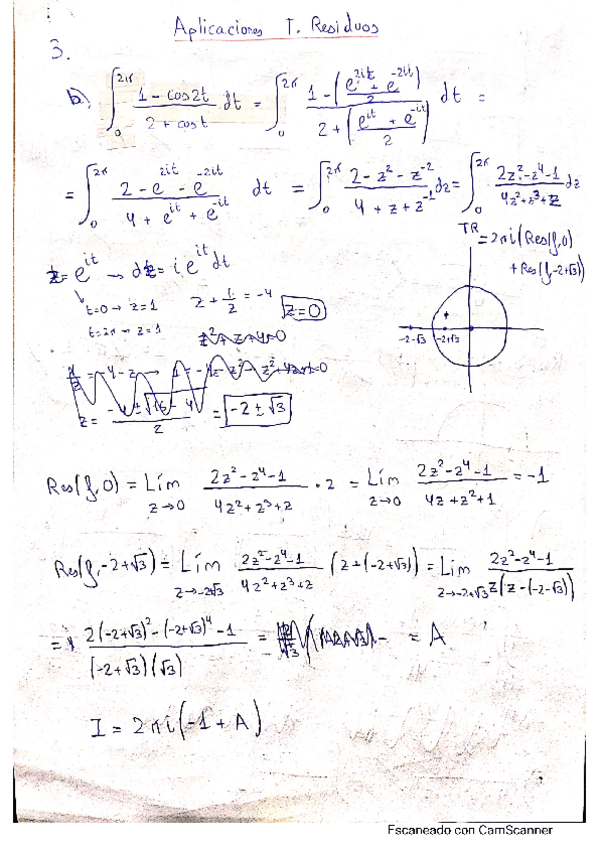 Aplicaciones T. Residuos
3.
b) ∫₀^{2π} (1 - cos2t)/(2 + cost) dt = ∫₀^{2π} (1 - ((e^{2it} + e^{-2it})/2))/(2 + ((e^{it} + e^{-it})/2)) dt =
= ∫₀^{2π} (2 - e^{2it} - e^{-2it})/(4 + e^{it} + e^{-it}) dt = ∫₀^{2π} (2 - z² - z^{-2})/(4 + z + z^{-1}) dz = ∫₀^{2π} (2z² - z⁴ - 1)/(4z² + z³ + z) dz
TR = 2πi (Res(f,0) + Res(f,-2+√3))
z = e^{it} → dz = i e^{it} dt
t=0 → z=1
t=2π → z=1
z + 1/z = -4
z=0
z = (-4 ± √(16 - 4))/2 = -2 ± √3
-2-√3 -2+√3
Res(f,0) = Lím_{z→0} (2z² - z⁴ - 1)/(4z² + z³ + z) · z = Lím_{z→0} (2z² - z⁴ - 1)/(4z + z² + 1) = -1
Res(f,-2+√3) = Lím_{z→-2√3} (2z² - z⁴ - 1)/(4z² + z³ + z) (z + (-2+√3)) = Lím_{z→-2+√3} (2z² - z⁴ - 1)/(z(z - (-2-√3)))
= (2(-2+√3)² - (-2+√3)⁴ - 1)/((-2+√3)(√3)) = = A
I = 2πi(-1 + A)
Escaneado con CamScanner